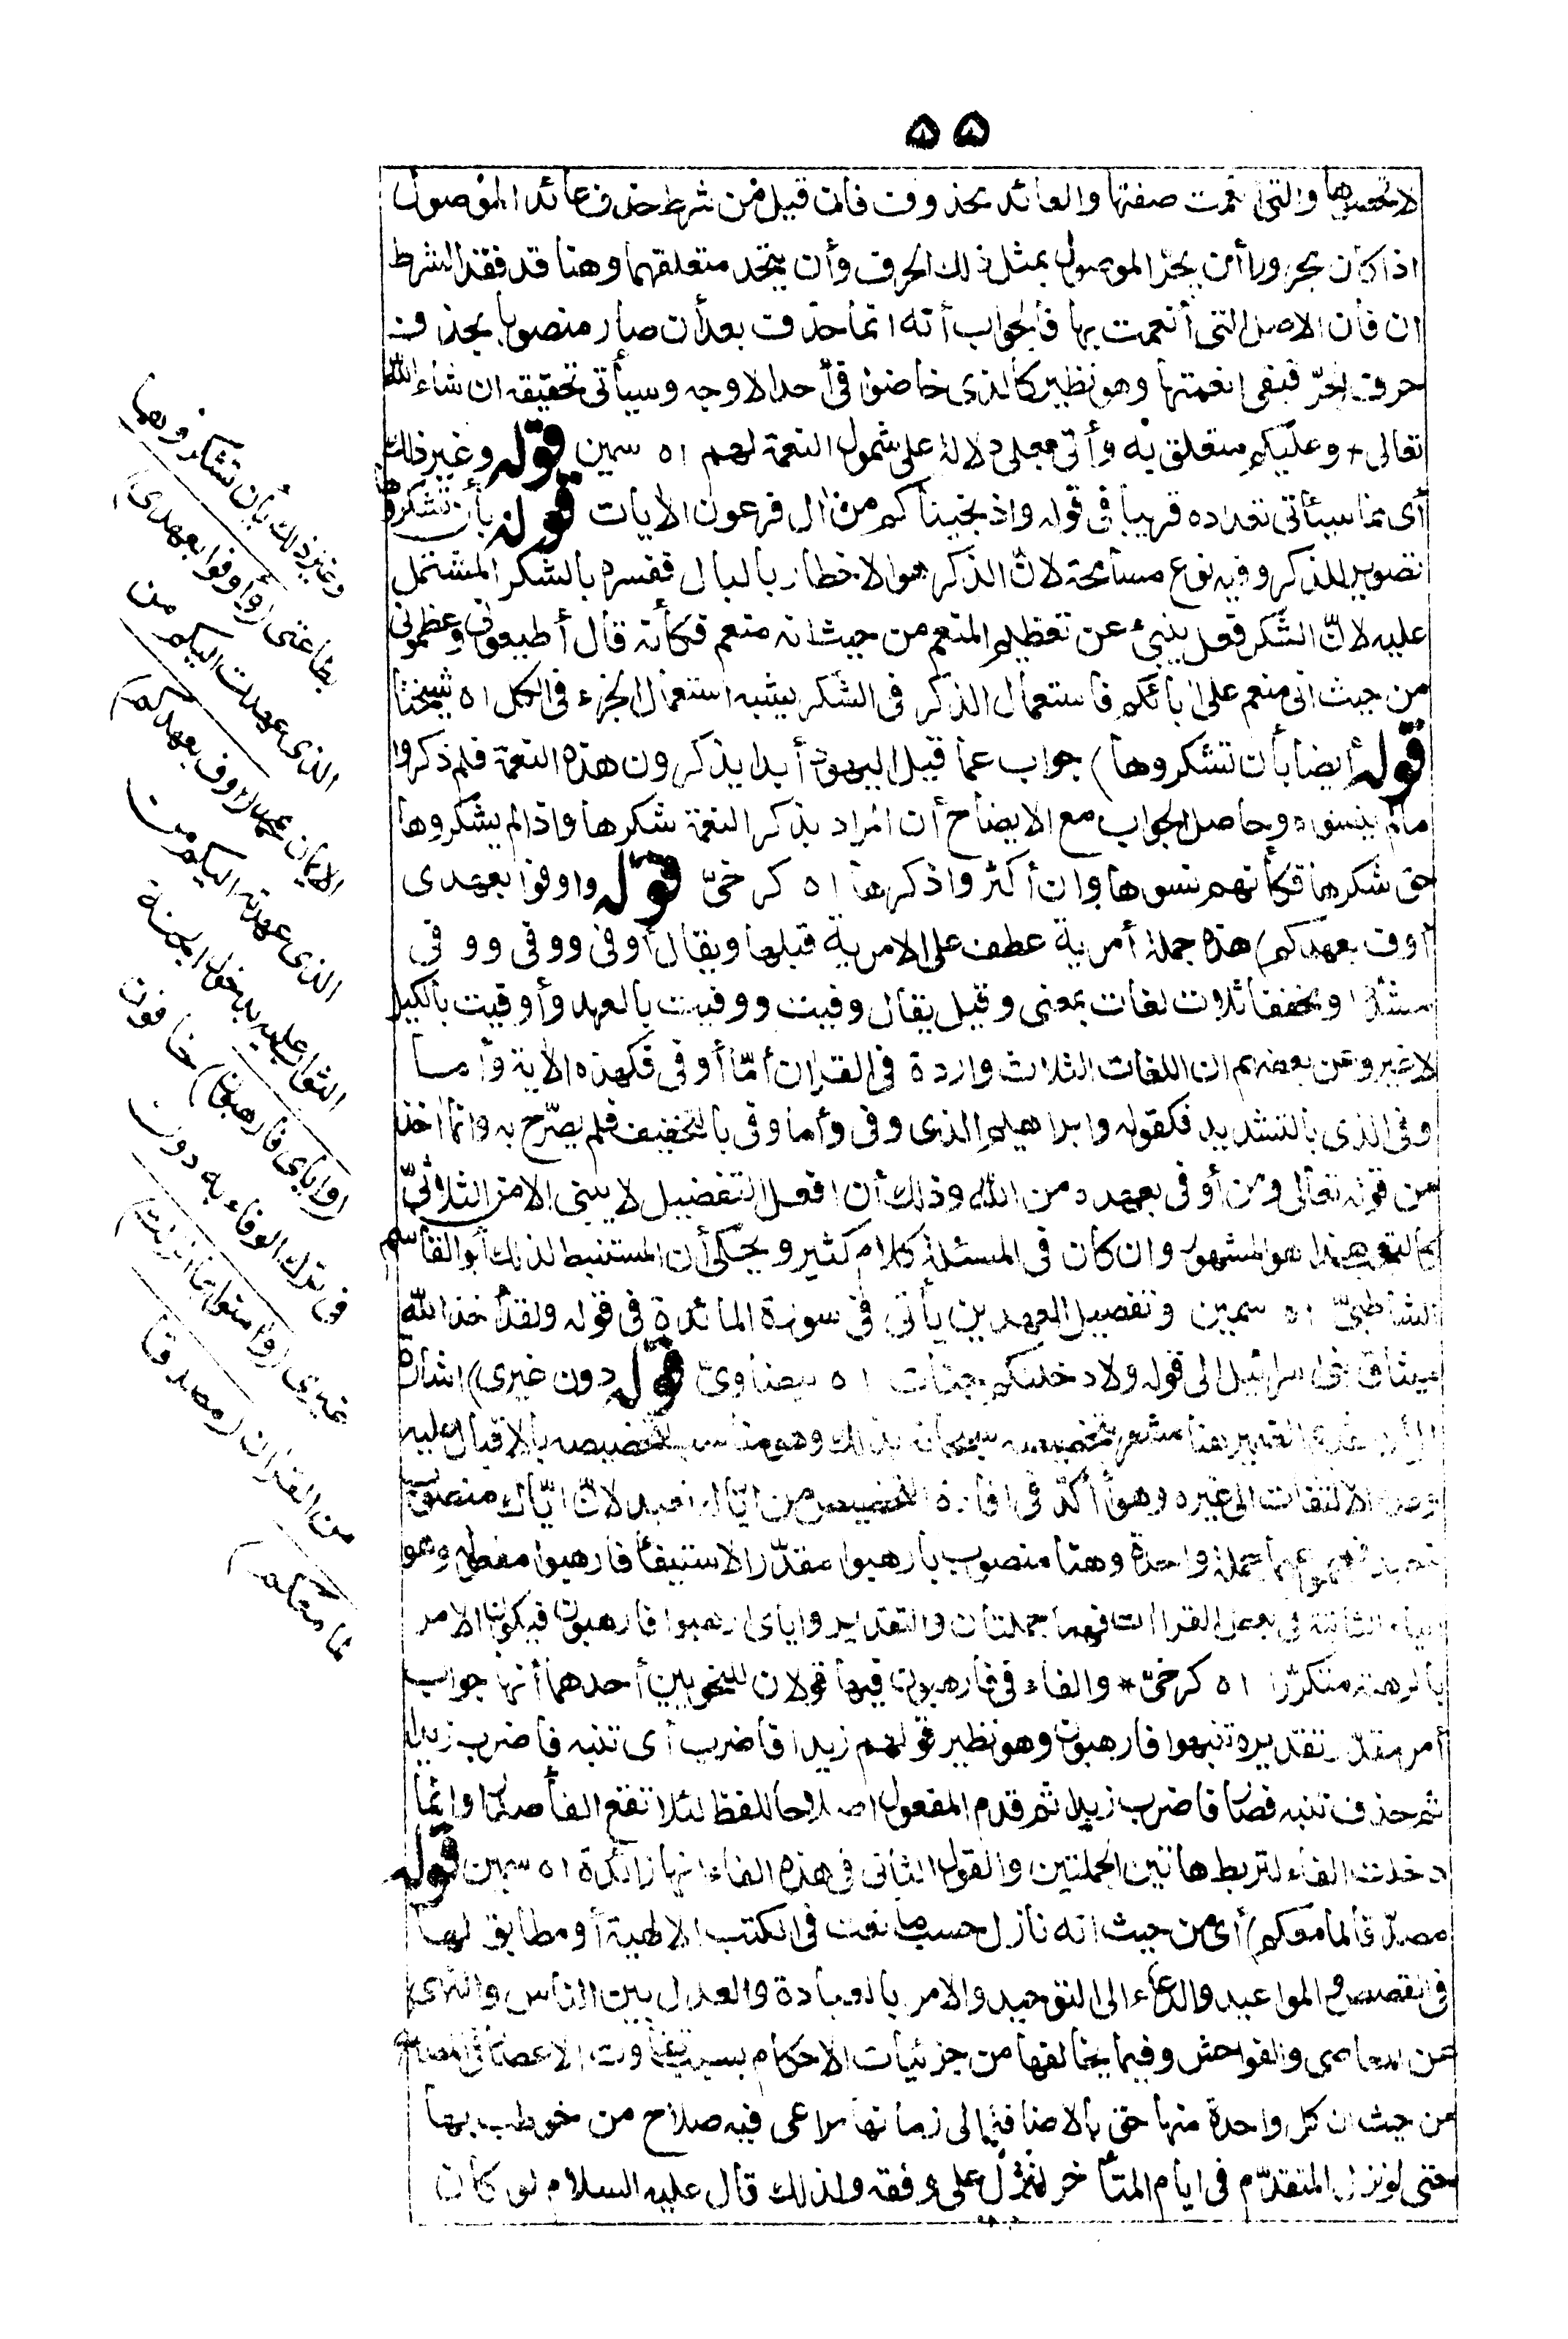 ٥٥
لا تحصوها والتى أنعمت صفتها والعائد محذوف فان قيل من شرط حذف عائد الموصول
اذا كان مجرورا أن يجرّ الموصول بمثل ذلك الحرف وأن يتحد متعلقهما وهنا قد فقد الشرط
ان فان الاصل التى أنعمت بها فالجواب أنه انما حذف بعد أن صار منصوبا بحذف
حرف الجرّ فبقى انعمتها وهو نظير كالذى خاضوا فى أحد الاوجه وسيأتى تحقيقه ان شاء الله
تعالى + وعليكم متعلق به وأتى بعلى دلالة على شمول النعمة لهم اه سمين قوله وغير ذلك
أى مما سيأتى تعداده قريبا فى قوله واذ نجيناكم من ال فرعون الايات قوله بأن تشكروها
تصوير للذكر وفيه نوع مسامحة لانّ الذكر هو الاخطار بالبال ففسره بالشكر المشتمل
عليه لانّ الشكر فعل ينبىء عن تعظيم المنعم من حيث انه منعم فكأنه قال أطيعونى وعظمونى
من حيث انى منعم على ابائكم فاستعمال الذكر فى الشكر يشبه استعمال الجزء فى الكل اه شيخنا
قوله أيضا بأن تشكروها) جواب عما قيل اليهود أبدا يذكرون هذه النعمة فلم ذكروا
مالم ينسوه وحاصل الجواب مع الايضاح أن المراد بذكر النعمة شكرها واذا لم يشكروها
حق شكرها فكأنهم نسوها وان أكثروا ذكرها اه كرخىّ قوله واوفوا بعهدى
أوف بعهدكم) هذه جملة أمرية عطف على الامرية قبلها ويقال أوفى ووفى ووفى
مشددا ومخففا ثلاث لغات بمعنى وقيل يقال وفيت ووفيت بالعهد وأوفيت بالكيل
لا غير وعن بعضهم ان اللغات الثلاث واردة فى القران أمّا أوفى فكهذه الاية وأما
وفى الذى بالتشديد فكقوله وابراهيم الذى وفى وأما وفى بالتخفيف فلم يصرّح به وانما أخذ
من قوله تعالى ومن أوفى بعهده من الله وذلك أن افعل التفضيل لا يبنى الا من الثلاثىّ
كالتعجب هذا هو المشهور وان كان فى المسئلة كلام كثير ويحكى أن المستنبط لذلك أبو القاسم
الشاطبىّ اه سمين وتفصيل العهدين يأتى فى سورة المائدة فى قوله ولقد أخذ الله
ميثاق بنى اسرائيل الى قوله ولادخلنكم جنات اه بيضاوىّ قوله دون غيرى) اشارة
الى أن تقديم الضمير هنا مشعر بتخصيصه سبحانه بذلك وهو مناسب لتخصيصه بالاقبال عليه
وعدم الالتفات الى غيره وهو أكد فى افادة التخصيص من اياك نعبد لانّ ايّاك منصوب
بنعبد فهو جملة واحدة وهنا منصوب بارهبوا مقدّرا لاستيفاء فارهبوا مفعوله وهو
الياء الثابتة فى بعض القراات فهما جملتان والتقدير واياى ارهبوا فارهبون فيكون الامر
بالرهبة متكرّرا اه كرخىّ * والفاء فى فارهبون فيها قولان للنحويين أحدهما أنها جواب
أمر مقدّر تقديره تنبهوا فارهبون وهو نظير قولهم زيدا فاضرب أى تنبه فاضرب زيدا
ثم حذف تنبه فصار فاضرب زيدا ثم قدم المفعول اصلاحا للفظ لئلا تقع الفاء صدرا وانما
دخلت الفاء لتربط هاتين الجملتين والقول الثانى فى هذه الفاء انها زائدة اه سمين قوله
مصدّقا لما معكم) أى من حيث انه نازل حسبما نعت فى الكتب الالهية أو مطابق لها
فى القصص والمواعيد والدعاء الى التوحيد والامر بالعبادة والعدل بين الناس والنهى
عن المعاصى والفواحش وفيما يخالفها من جزئيات الاحكام بسبب تفاوت الاعصار فى المصالح
من حيث ان كل واحدة منها حق بالاضافة الى زمانها مراعى فيه صلاح من خوطب بها
حتى لو نزل المتقدّم فى ايام المتأخر لنزل على وفقه ولذلك قال عليه السلام لو كان
وغير ذلك بأن تشكروها
بطاعتى (وأوفوا بعهدى)
الذى عهدت اليكم من
الايمان بمحمد (أوف بعهدكم)
الذى عهدته اليكم من
الثواب عليه بدخول الجنة
(واياى فارهبون) خافون
فى ترك الوفاء به دون
غيرى (وامنوا بما أنزلت)
من القران (مصدقا
لما معكم)